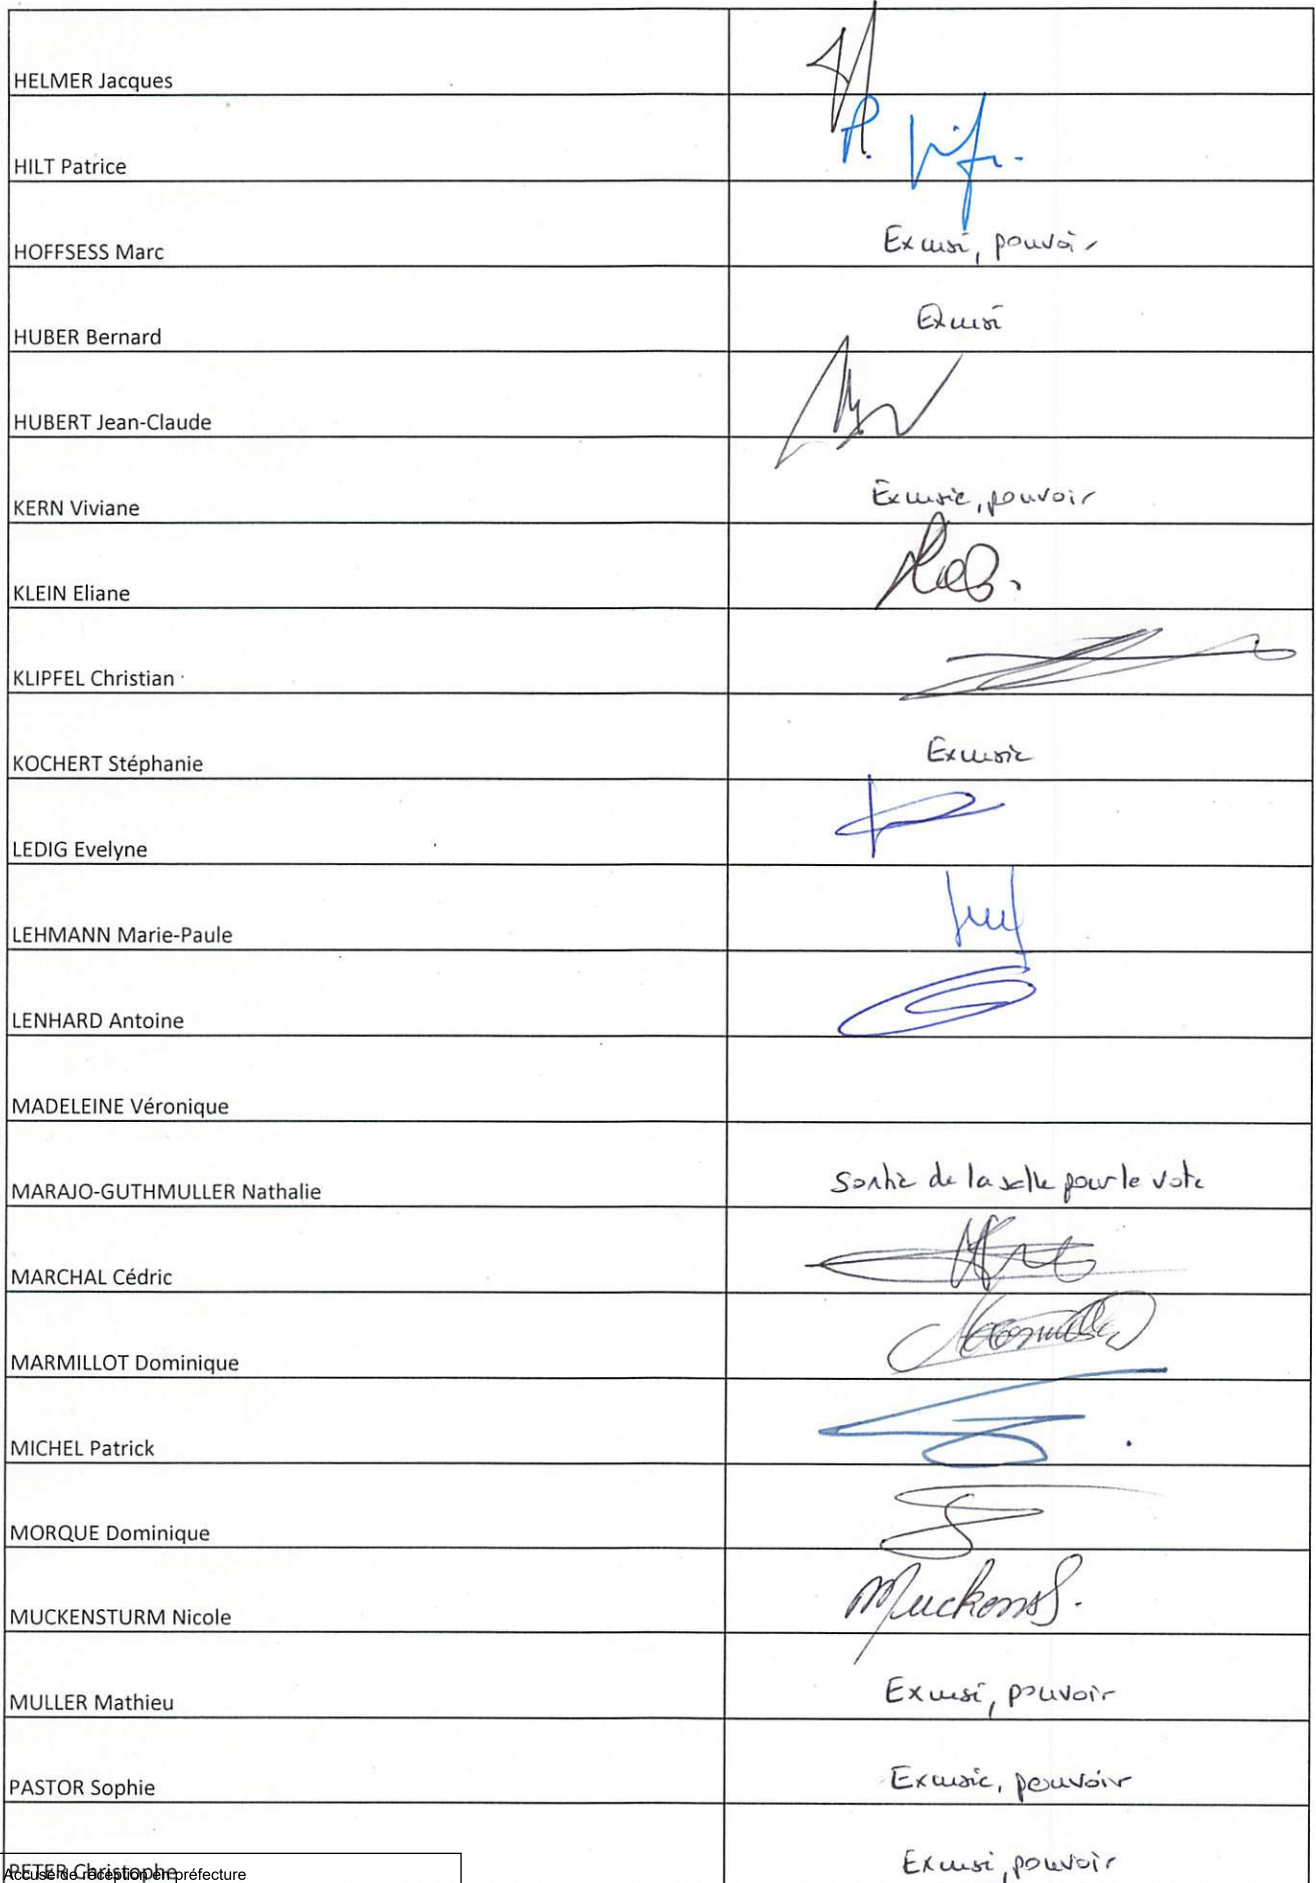 HELMER Jacques
HILT Patrice
HOFFSESS Marc Excusé, pouvoir
HUBER Bernard Excusé
HUBERT Jean-Claude
KERN Viviane Excusée, pouvoir
KLEIN Eliane
KLIPFEL Christian
KOCHERT Stéphanie Excusée
LEDIG Evelyne
LEHMANN Marie-Paule
LENHARD Antoine
MADELEINE Véronique
MARAJO-GUTHMULLER Nathalie Sortie de la salle pour le vote
MARCHAL Cédric
MARMILLOT Dominique
MICHEL Patrick
MORQUE Dominique
MUCKENSTURM Nicole
MULLER Mathieu Excusé, pouvoir
PASTOR Sophie Excusée, pouvoir
PETER Christophe Excusé, pouvoir
Accusé de réception en préfecture